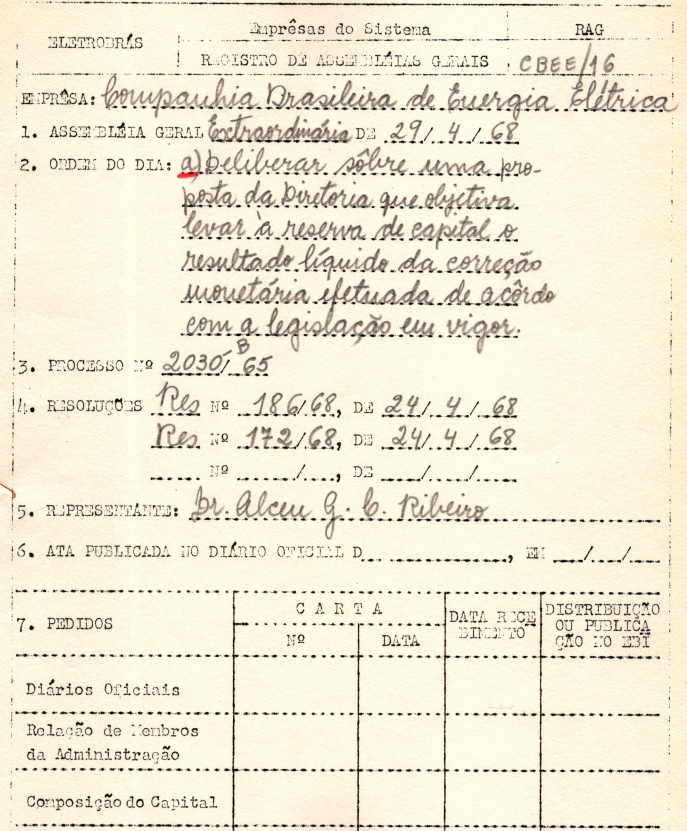 ELETROBRÁS
Emprêsas do Sistema
RAG
REGISTRO DE ASSEMBLÉIAS GERAIS
CBEE/16
EMPRÊSA: Companhia Brasileira de Energia Elétrica
1. ASSEMBLÉIA GERAL Extraordinária DE 29/ 4 / 68
2. ORDEM DO DIA: a) Deliberar sôbre uma pro-
posta da Diretoria que objetiva
levar à reserva de capital o
resultado líquido da correção
monetária efetuada de acôrdo
com a legislação em vigor.
3. PROCESSO Nº 2030/B 65
4. RESOLUÇÕES Res Nº 186/68, DE 24/ 4 / 68
Res Nº 172/68, DE 24/ 4 / 68
Nº /, DE / /
5. REPRESENTANTE: Dr. Alceu G. C. Ribeiro
6. ATA PUBLICADA NO DIÁRIO OFICIAL D , EM / /
7. PEDIDOS
CARTA
Nº
DATA
DATA RECE
BIMENTO
DISTRIBUIÇÃO
OU PUBLICA
ÇÃO NO EBI
Diários Oficiais
Relação de Membros
da Administração
Composição do Capital